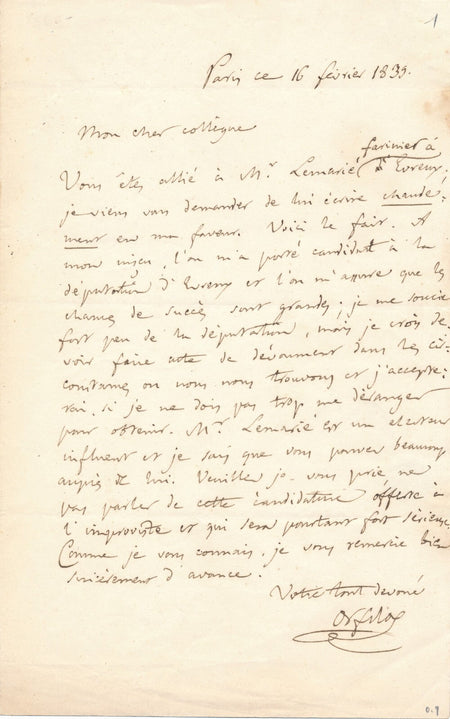 1
Paris ce 16 février 1839.
Mon cher collègue
farinier à
Vous êtes allié à Mr. Lemarié d'Evreux;
je viens vous demander de lui écrire chaude-
ment en ma faveur. Voici le fait. A
mon insçu, l'on m'a porté candidat à la
députation d'Evreux et l'on m'assure que les
chances de succès sont grandes; je me soucie
fort peu de la députation, mais je crois de-
voir faire acte de dévoument dans les cir-
constances où nous nous trouvons et j'accepte-
rai, si je ne dois pas trop me déranger
pour obtenir. Mr. Lemarié est un electeur
influent et je sais que vous pouvez beaucoup
auprès de lui. Veuillez je vous prie ne
pas parler de cette candidature offerte à
l'improviste et qui sera pourtant fort sérieuse.
Comme je vous connais, je vous remercie bien
sincèrement d'avance.
Votre tout devoué
Orfila
0.9